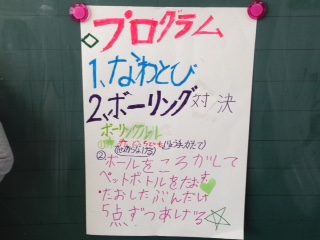 プログラム
1、なわとび
2、ボーリング対決
ボーリングルール
①
②ボールをころがして
ペットボトルをたおす
・たおしたぶんだけ
5点ずつあげる